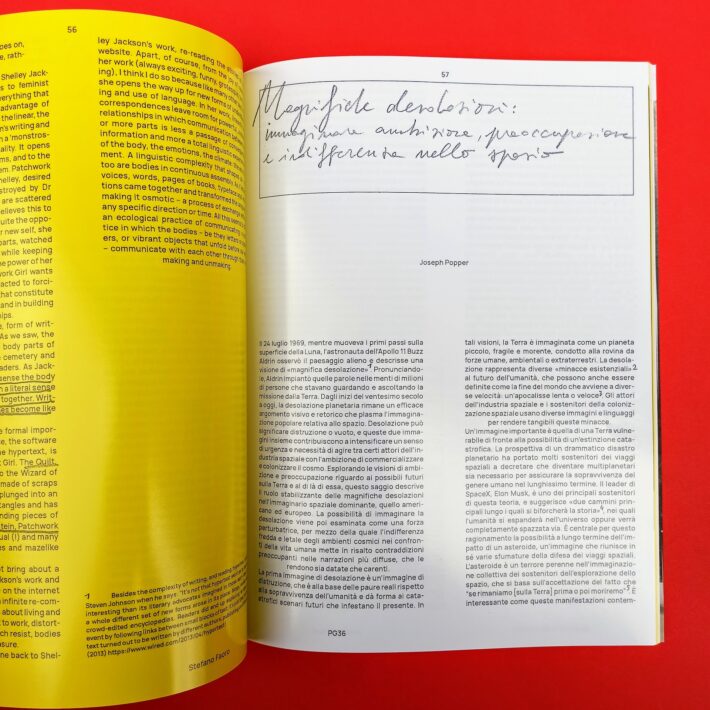 56
oes on,
e, rath-
Shelley Jack-
s to feminist
verything that
advantage of
the linear, the
n's writing and
h a 'monstros-
ality. It opens
ms, and to the
em. Patchwork
helley, desired
stroyed by Dr
are scattered
elieves this to
uite the oppo-
r new self, she
parts, watched
while keeping
e power of her
ork Girl wants
acted to forci-
that constitute
and in building
hips.
e, form of writ-
As we saw, the
body parts of
e cemetery and
aders. As Jack-
sense the body
n a literal sense
together. Writ-
es become like
e formal impor-
, the software
hypertext, is
t Girl. The Quilt,
o the Wizard of
made of scraps
plunged into an
tangles and has
nding pieces of
tein, Patchwork
ual (!) and many
es and mazelike
t bring about a
kson's work and
on the internet
infinite re-com-
about living and
to work, distort-
ch resist, bodies
asure.
ne back to Shel-
ley Jackson's work, re-reading the
website. Apart, of course, from the
her work (always exciting, funny, grotesque
ing), I think I do so because like many other
she opens the way up for new forms of
ing and use of language. In her work,
correspondences leave room for powerful
relationships in which communication between
or more parts is less a passage of
information and more a total linguistic
of the body, the emotions, the climate, the
ment. A linguistic complexity that
too are bodies in continuous assembly. As
voices, words, pages of books, typeface and
tions came together and transformed the
making it osmotic – a process of exchange
any specific direction or time. All this
an ecological practice of communicating,
tice in which the bodies – be they letters or
ers, or vibrant objects that unfold before
– communicate with each other through the
making and unmaking
*1 Besides the complexity of writing, and reading hypertext,
Steven Johnson when he says, "It's not that hypertext
interesting than its literary advocates imagined
a whole different set of new forms arose in its place: blogs,
crowd-edited encyclopedias. Readers did end up
event by following links between small blocks of text,
text turned out to be written by different authors,
(2013) https://www.wired.com/2013/04/hypertext/
Stefano Faoro
57
Magnifiche desolazioni:
immaginare ambizione, preoccupazione
e indifferenza nello spazio
Joseph Popper
Il 24 luglio 1969, mentre muoveva i primi passi sulla
superficie della Luna, l'astronauta dell'Apollo 11 Buzz
Aldrin osservò il paesaggio alieno e descrisse una
visione di «magnifica desolazione»1. Pronunciando-
le, Aldrin impiantò quelle parole nelle menti di milioni
di persone che stavano guardando e ascoltando la
missione dalla Terra. Dagli inizi del ventesimo secolo
a oggi, la desolazione planetaria rimane un efficace
argomento visivo e retorico che plasma l'immagina-
zione popolare relativa allo spazio. Desolazione può
significare distruzione o vuoto, e queste due immagi-
ni insieme contribuiscono a intensificare un senso
di urgenza e necessità di agire tra certi attori dell'in-
dustria spaziale con l'ambizione di commercializzare
e colonizzare il cosmo. Esplorando le visioni di ambi-
zione e preoccupazione riguardo ai possibili futuri
sulla Terra e al di là di essa, questo saggio descrive
il ruolo stabilizzante delle magnifiche desolazioni
nell'immaginario spaziale dominante, quello ameri-
cano ed europeo. La possibilità di immaginare la
desolazione viene poi esaminata come una forza
perturbatrice, per mezzo della quale l'indifferenza
fredda e letale degli ambienti cosmici nei confron-
ti della vita umana mette in risalto contraddizioni
preoccupanti nelle narrazioni più diffuse, che le
rendono sia datate che carenti.
La prima immagine di desolazione è un'immagine di
distruzione, che è alla base delle paure reali rispetto
alla sopravvivenza dell'umanità e dà forma ai cata-
strofici scenari futuri che infestano il presente. In
tali visioni, la Terra è immaginata come un pianeta
piccolo, fragile e morente, condotto alla rovina da
forze umane, ambientali o extraterrestri. La desola-
zione rappresenta diverse «minacce esistenziali»2
al futuro dell'umanità, che possono anche essere
definite come la fine del mondo che avviene a diver-
se velocità: un'apocalisse lenta o veloce3. Gli attori
dell'industria spaziale e i sostenitori della coloniz-
zazione spaziale usano diverse immagini e linguaggi
per rendere tangibili queste minacce.
Un'immagine importante è quella di una Terra vulne-
rabile di fronte alla possibilità di un'estinzione cata-
strofica. La prospettiva di un drammatico disastro
planetario ha portato molti sostenitori dei viaggi
spaziali a decretare che diventare multiplanetari
sia necessario per assicurare la sopravvivenza del
genere umano nel lunghissimo termine. Il leader di
SpaceX, Elon Musk, è uno dei principali sostenitori
di questa teoria, e suggerisce «due cammini princi-
pali lungo i quali si biforcherà la storia»4, nei quali
l'umanità si espanderà nell'universo oppure verrà
completamente spazzata via. È centrale per questo
ragionamento la possibilità a lungo termine dell'im-
patto di un asteroide, un'immagine che riunisce in
sé varie sfumature della difesa dei viaggi spaziali.
L'asteroide è un terrore perenne nell'immaginazio-
ne collettiva dei sostenitori dell'esplorazione dello
spazio, che si basa sull'accettazione del fatto che
"se rimaniamo [sulla Terra] prima o poi moriremo"5. È
interessante come queste manifestazioni contem-
PG36